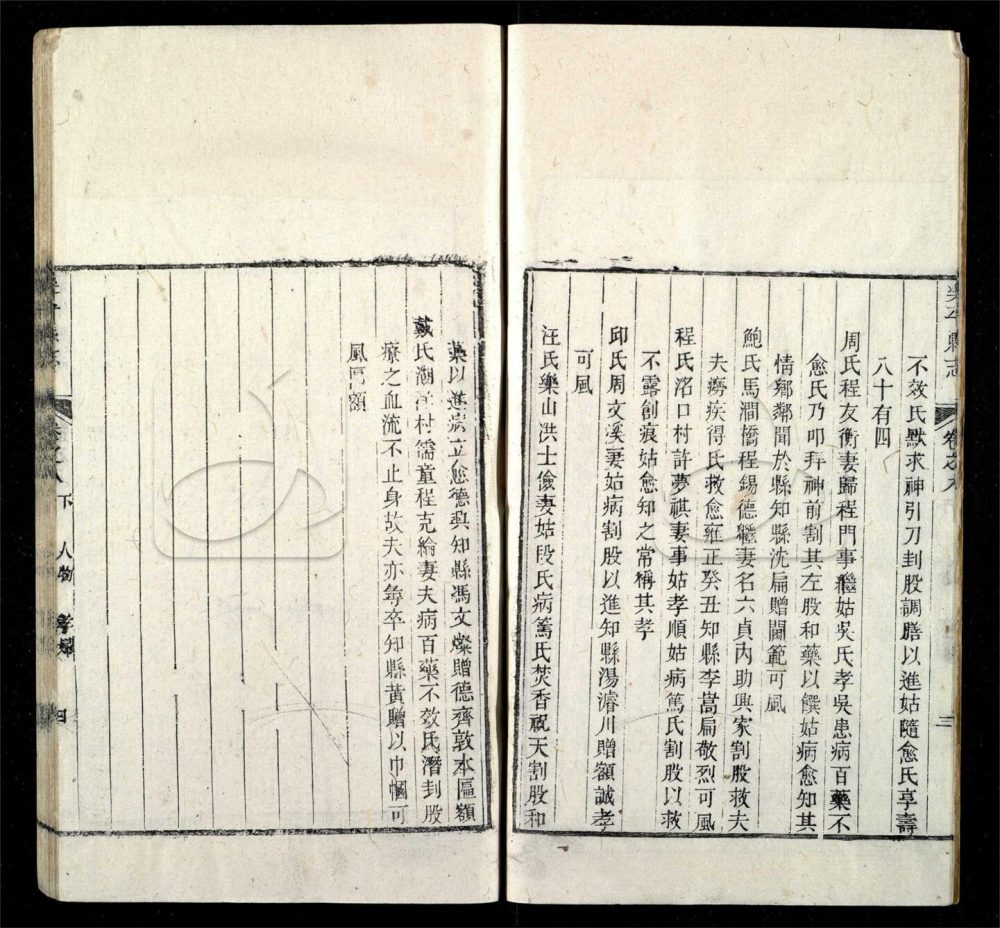 樂平縣志
卷之八
三
不效氏默求神引刀刲股調膳以進姑隨愈氏享壽
八十有四
周氏程友衡妻歸程門事繼姑吳氏孝吳患病百藥不
愈氏乃叩拜神前割其左股和藥以饌姑病愈知其
情鄉鄰聞於縣知縣沈扁贈閫範可風
鮑氏馬澗橋程錫德繼妻名六貞內助興家割股救夫
夫癆疾得氏救愈雍正癸丑知縣李嵩扁敬烈可風
程氏洺口村許夢祺妻事姑孝順姑病篤氏割股以救
不露創痕姑愈知之常稱其孝
邱氏周文溪妻姑病割股以進知縣湯濬川贈額誠孝
可風
汪氏樂山洪士儉妻姑段氏病篤氏焚香祝天割股和
藥以進病立愈德興知縣馮文燦贈德齊敦本匾額
戴氏湖村儒童程克綸妻夫病百藥不效氏潛刲股
療之血流不止身故夫亦尋卒知縣黃贈以巾幗可
風匾額
樂平縣志
卷之八
下
人物
孝婦
四